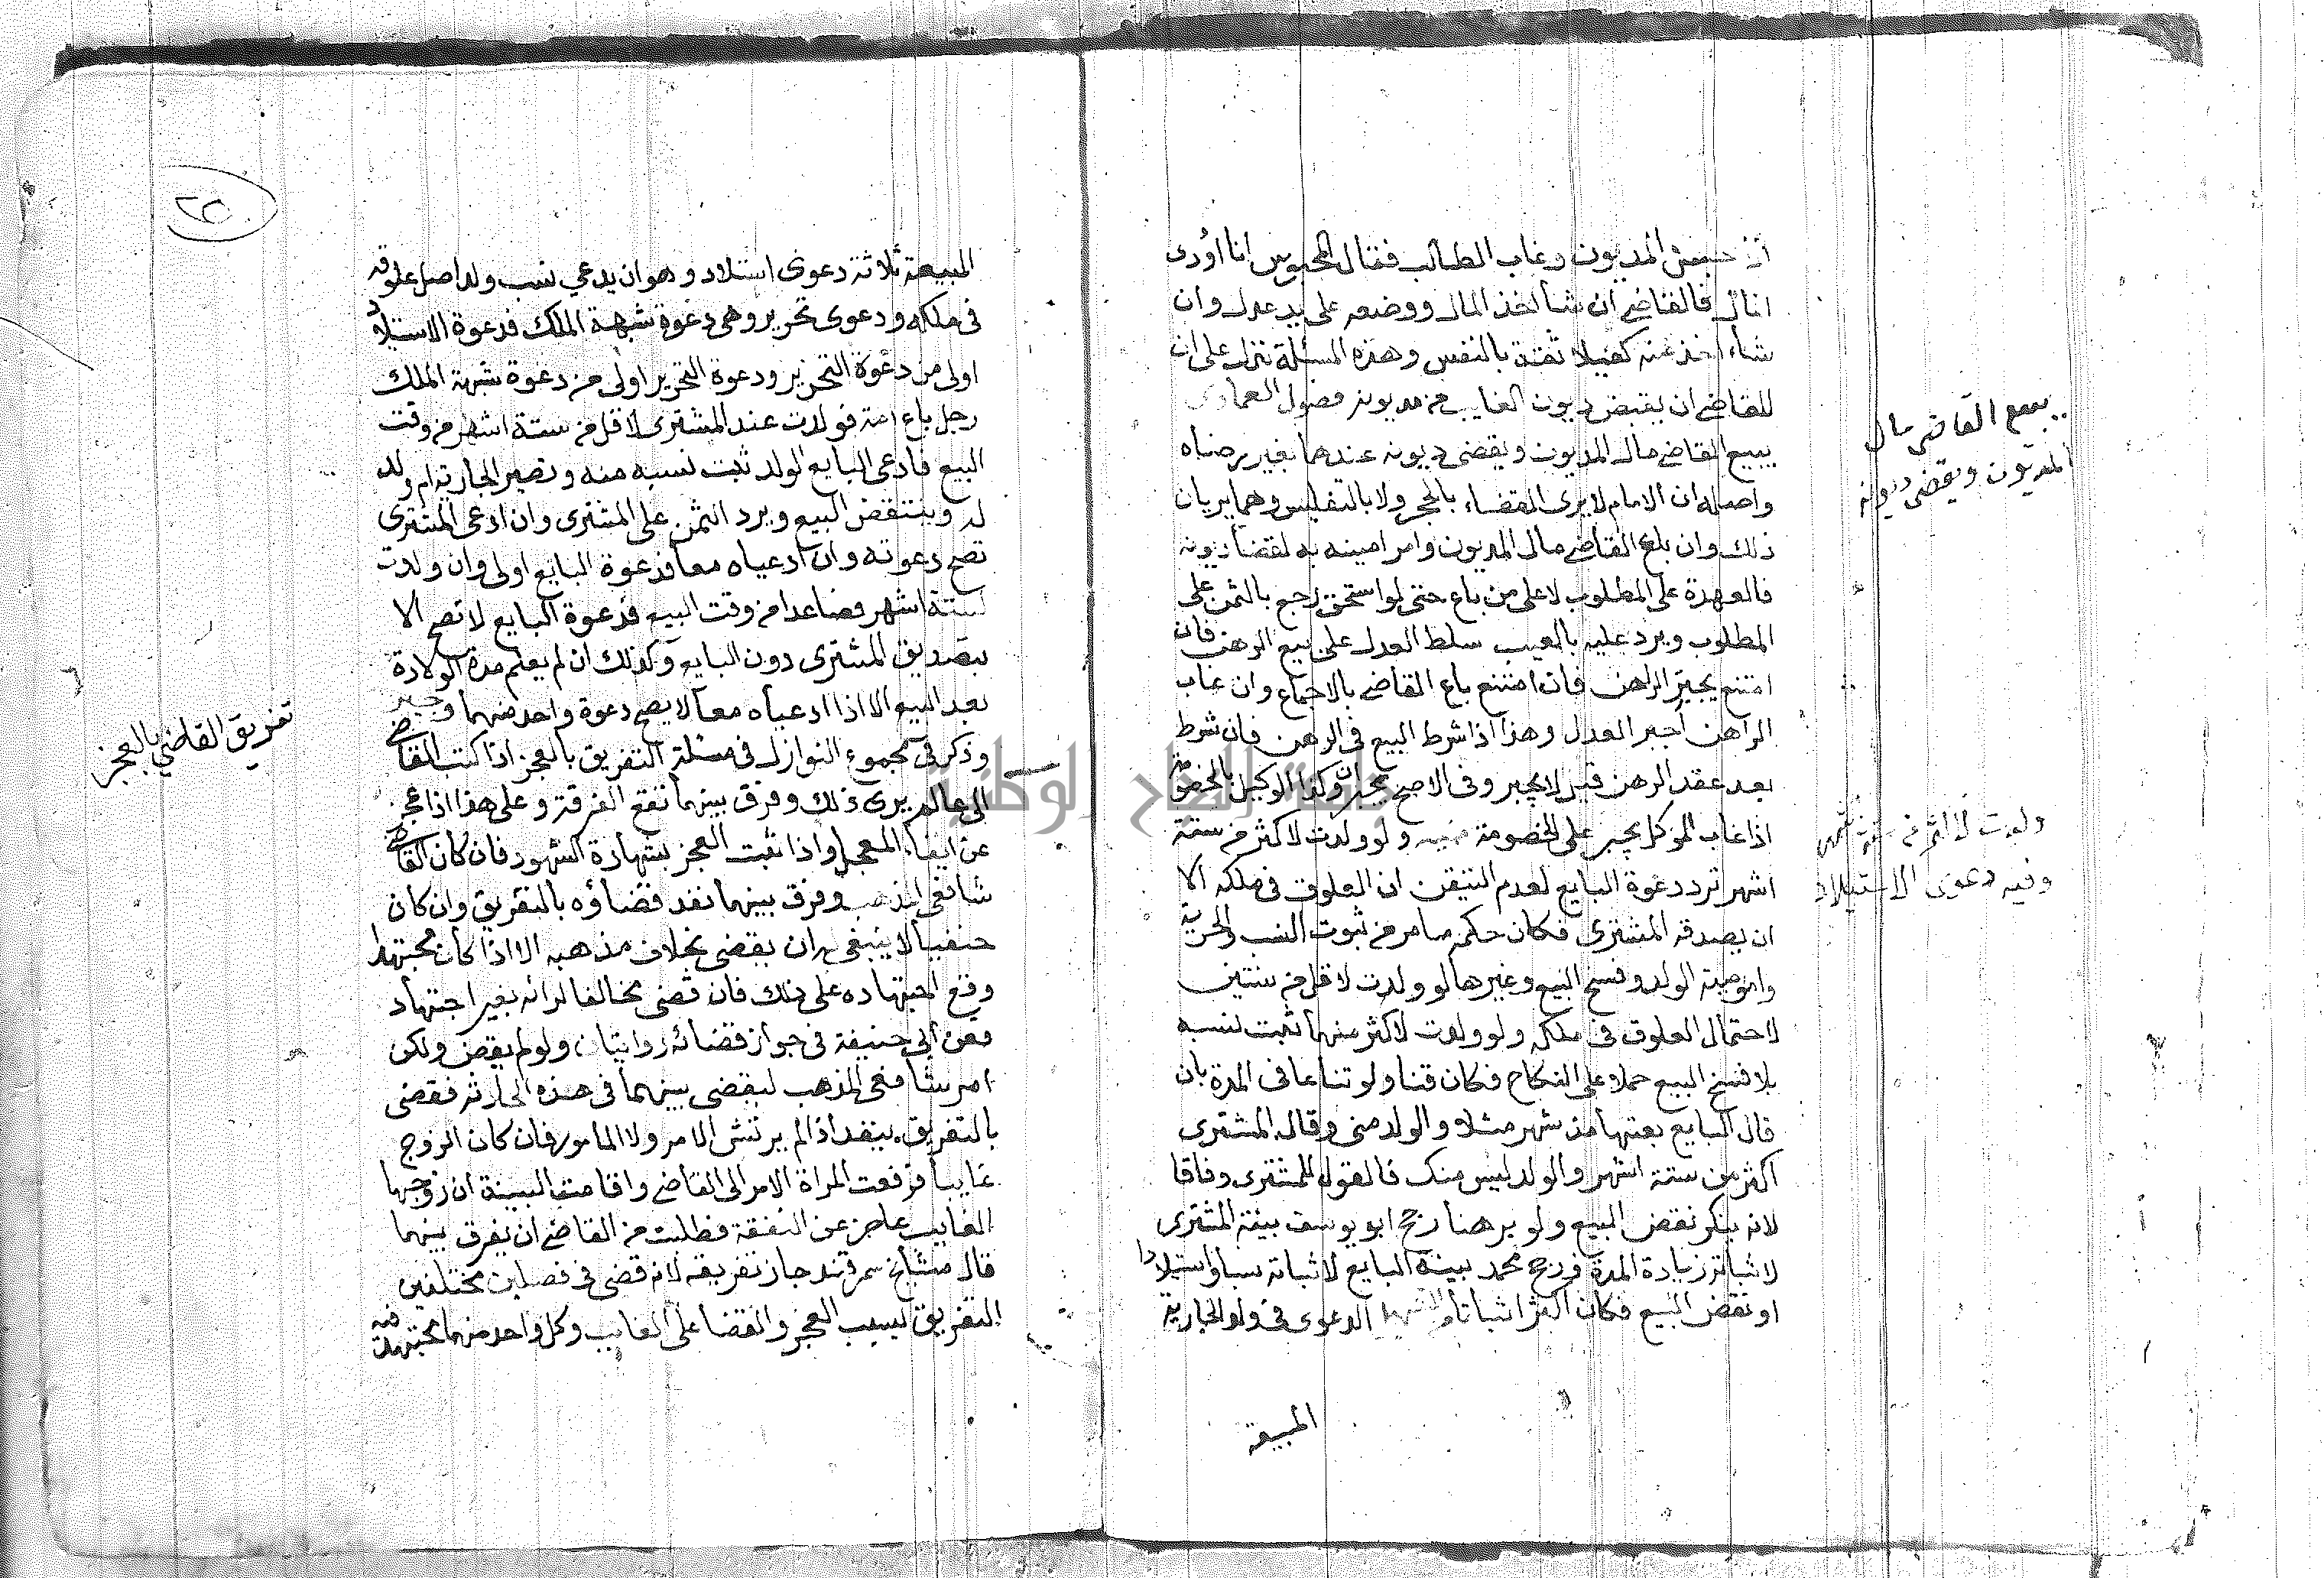 ان حبس المديون وغاب الطالب فقال المحبوس انا اودى
المال فالقاضي ان شا اخذ المال ووضعه على يد عدل وان
شاء اخذ منه كفيلا ثقة بالنفس وهذه المسئلة تنزل على ان
للقاضي ان يقبض ديون الغايب من مديونه فصول العمادى
يبيع القاضي مال المديون ويقضى ديونه عندهما بغير رضاه
واصله ان الامام لا يرى القضاء بالحجر ولا بالتفليس وهما يريان
ذلك وان باع القاضي مال المديون وامر امينه به لقضا ديونه
فالعهدة على المطلوب لا على من باع حتى لو استحق رجع بالثمن على
المطلوب ويرد عليه بالعيب سلط العدل على بيع الرهن فان
امتنع يجبر الراهن فان امتنع باع القاضي بالاجماع وان غاب
الراهن اجبر العدل وهذا اذا شرط البيع فى الرهن فان شرط
بعد عقد الرهن قيل لا يجبر وفى الاصح يجبران وكذا الوكيل بالخصومة
اذا غاب الموكل يجبر على الخصومة ولو ولدت لاكثر من ستة
اشهر ترد دعوة البايع لعدم التيقن ان العلوق فى ملكه الا
ان يصدقه المشترى فكان حكمه ما مر من ثبوت النسب والحرية
وامومية الولد وفسخ البيع وغيرها لو ولدت لاقل من سنتين
لاحتمال العلوق فى ملكه ولو ولدت لاكثر منهما ثبت نسبه
بلا فسخ البيع حملا على النكاح فكان قنا ولو تنازعا فى المدة بان
قال البايع بعتها منذ شهر مثلا والولد منى وقال المشترى
اكثر من ستة اشهر والولد ليس منك فالقول للمشترى وفاقا
لانه ينكر نقض البيع ولو برهنا رجح ابو يوسف بينة المشترى
لاثباته زيادة المدة ورجح محمد بينة البايع لاثباته نسبا واستيلادا
او نقض البيع فكان اكثر اثباتا الدعوى فى ولد الجارية
المبيعة
يبيع القاضي مال
المديون ويقضى ديونه
ولدت لاكثر من ستة اشهر
وفيه دعوى الاستيلاد
٢٥
المبيعة ثلاثة دعوى استلاد وهو ان يدعي نسب ولد اصل علوقه
فى ملكه ودعوى تحرير وهى دعوة شبهة الملك فدعوة الاستيلاد
اولى من دعوة التحرير ودعوة التحرير اولى من دعوة شبهة الملك
رجل باع امة فولدت عند المشترى لاقل من ستة اشهر من وقت
البيع فادعى البايع الولد ثبت نسبه منه وتصير الجارية ام ولد
له وينتقض البيع ويرد الثمن على المشترى وان ادعى المشترى
تصح دعوته وان ادعياه معا فدعوة البايع اولى وان ولدت
لستة اشهر فصاعدا من وقت البيع فدعوة البايع لا تصح الا
بتصديق المشترى دون البايع وكذلك ان لم يعلم مدة الولادة
بعد البيع الا اذا ادعياه معا لا يصح دعوة واحد منهما وجيز
وذكر فى مجموع النوازل فى مسئلة التفريق بالعجز اذا كتب القاضي
الى عالم يرى ذلك وفرق بينهما تقع الفرقة وعلى هذا اذا عجز
عن ايفاء المعجل واذا ثبت العجز بشهادة الشهود فان كان القاضي
شافعى المذهب وفرق بينهما نفذ قضاؤه بالتفريق وان كان
حنفيا لا ينبغى ان يقضى بخلاف مذهبه الا اذا كان مجتهدا
وقع اجتهاده على ذلك فان قضى مخالفا لرائه بغير اجتهاد
فعن ابى حنيفة فى جواز قضائه روايتان ولو لم يقض ولكن
امر شافعى المذهب ليقضى بينهما فى هذه الحادثه فقضى
بالتفريق ينفذ اذا لم يرتش الامر ولا المامور فان كان الزوج
غايبا فرفعت المراة الامر الى القاضي واقامت البينة ان زوجها
الغايب عاجز عن النفقة فطلبت من القاضي ان يفرق بينهما
قال مشايخ سمرقند جاز تفريقه لانه قضى فى فصلين مختلفين
التفريق بسبب العجز والقضا على الغايب وكل واحد منهما مجتهد فيه
تفريق القاضي بالعجز